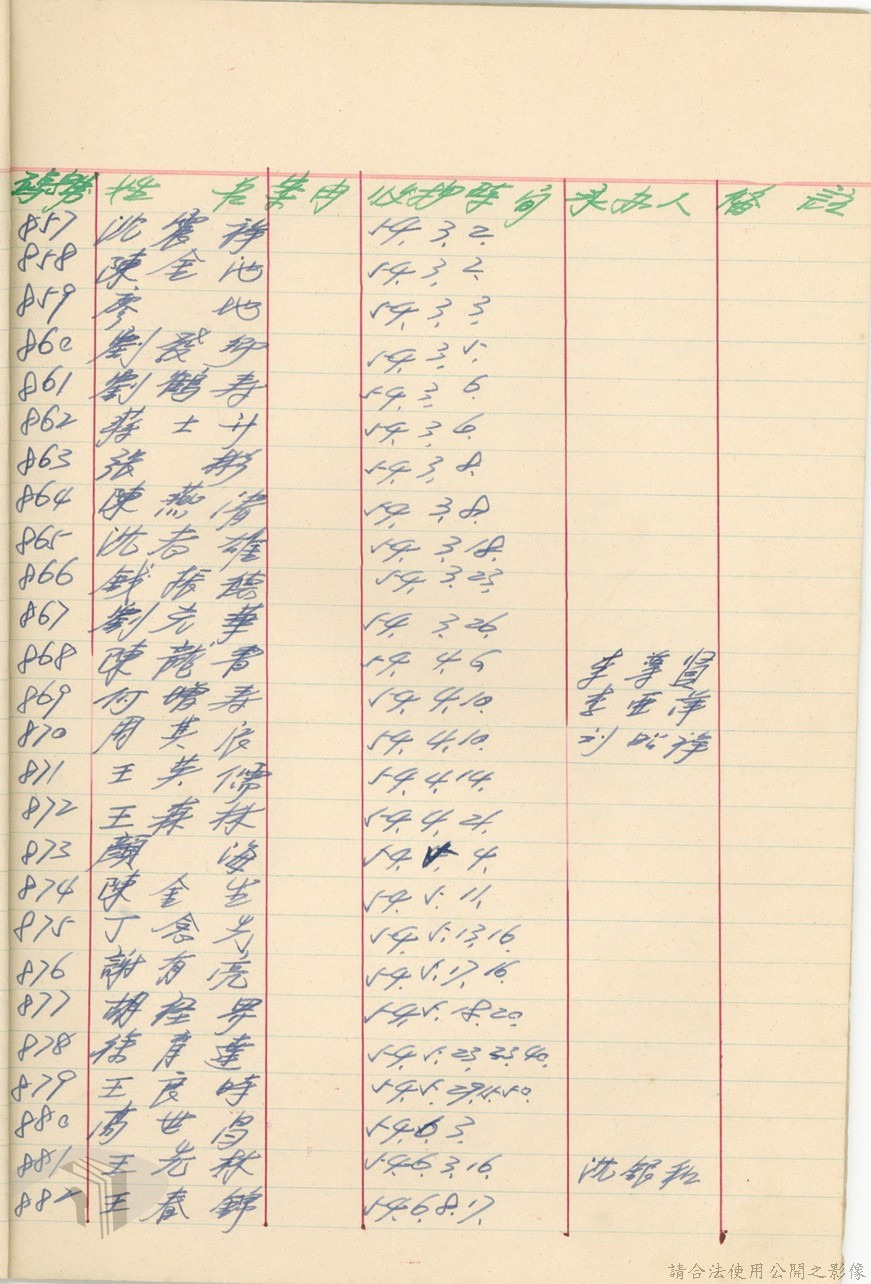 號 姓 名 案由 收押時間 承办人 備 註
857 沈震祥 54. 3. 2.
858 陳金池 54. 3. 2.
859 廖 地 54. 3. 3.
860 劉發卿 54. 3. 5.
861 劉鶴寿 54. 3. 6.
862 蔣士升 54. 3. 6.
863 張 彬 54. 3. 8.
864 陳燕清 54. 3. 8.
865 沈春雄 54. 3. 18.
866 錢振 54. 3. 23.
867 劉光華 54. 3. 26.
868 陳龍青 54. 4. 6 李 賢
869 何 寿 54. 4. 10. 李亚萍
870 周其良 54. 4. 10. 刘昭祥
871 王英儒 54. 4. 14.
872 王森林 54. 4. 21.
873 顏 海 54. 5. 4.
874 陳金生 54. 5. 11.
875 丁念先 54. 5. 13, 16.
876 謝有亮 54. 5. 17, 16.
877 胡 界 54. 5. 18. 20.
878 徐育達 54. 5. 23,
879 王良時 54. 5. 29
880 萬世昌 54. 6 3.
881 王光林 54. 6. 3. 16. 沈銀和
882 王春錦 54. 6. 8. 17.
請合法使用公開之影像